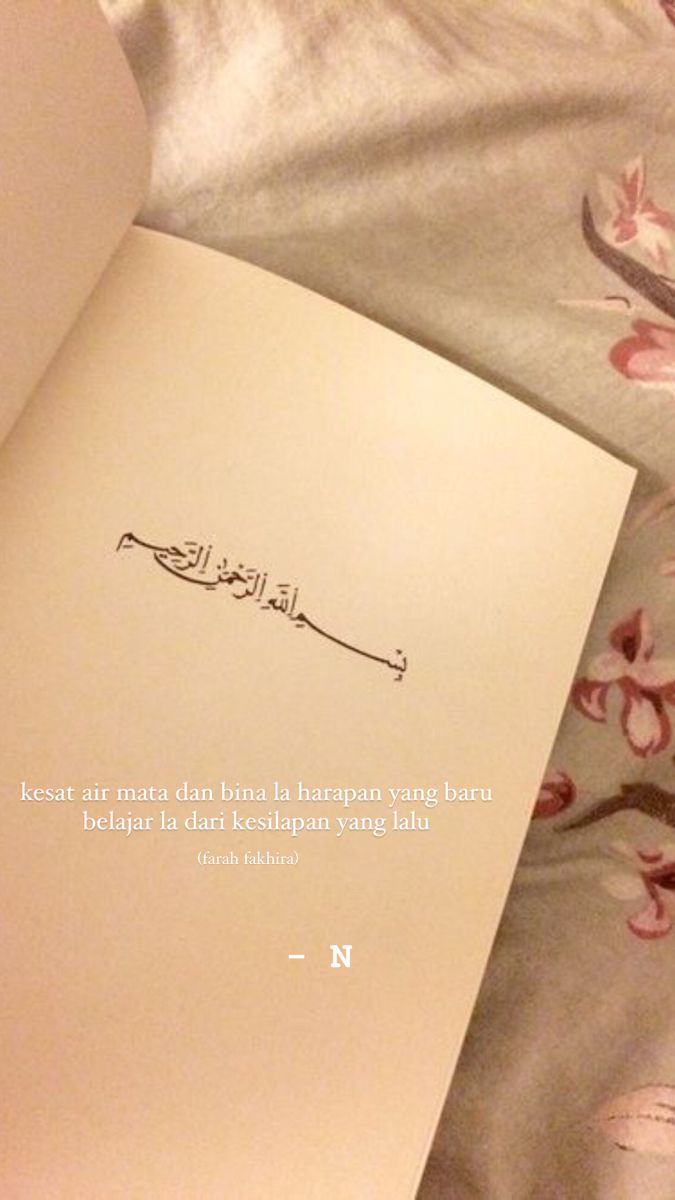 بِسْمِ اللَّهِ الرَّحْمَٰنِ الرَّحِيمِ
kesat air mata dan bina la harapan yang baru
belajar la dari kesilapan yang lalu
(farah fakhira)
– N